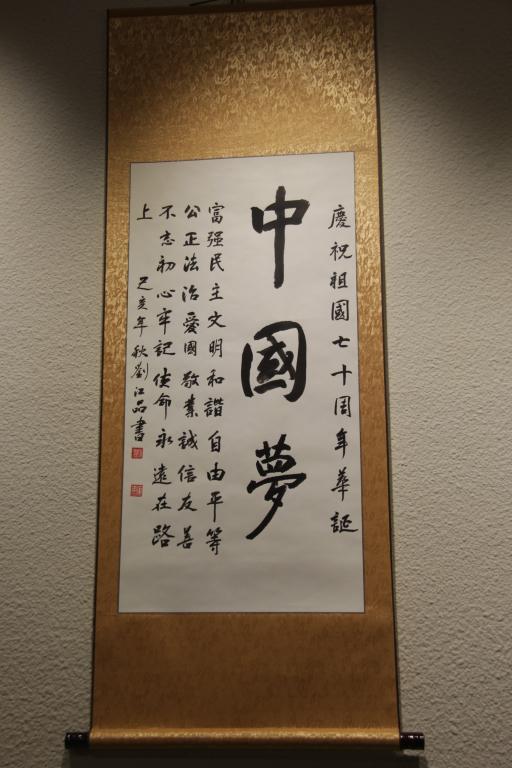 慶祝祖國七十周年華誕
中國夢
富强民主文明和諧自由平等
公正法治愛國敬業誠信友善
不忘初心牢記使命永遠在路
上
己亥年秋劉江品書